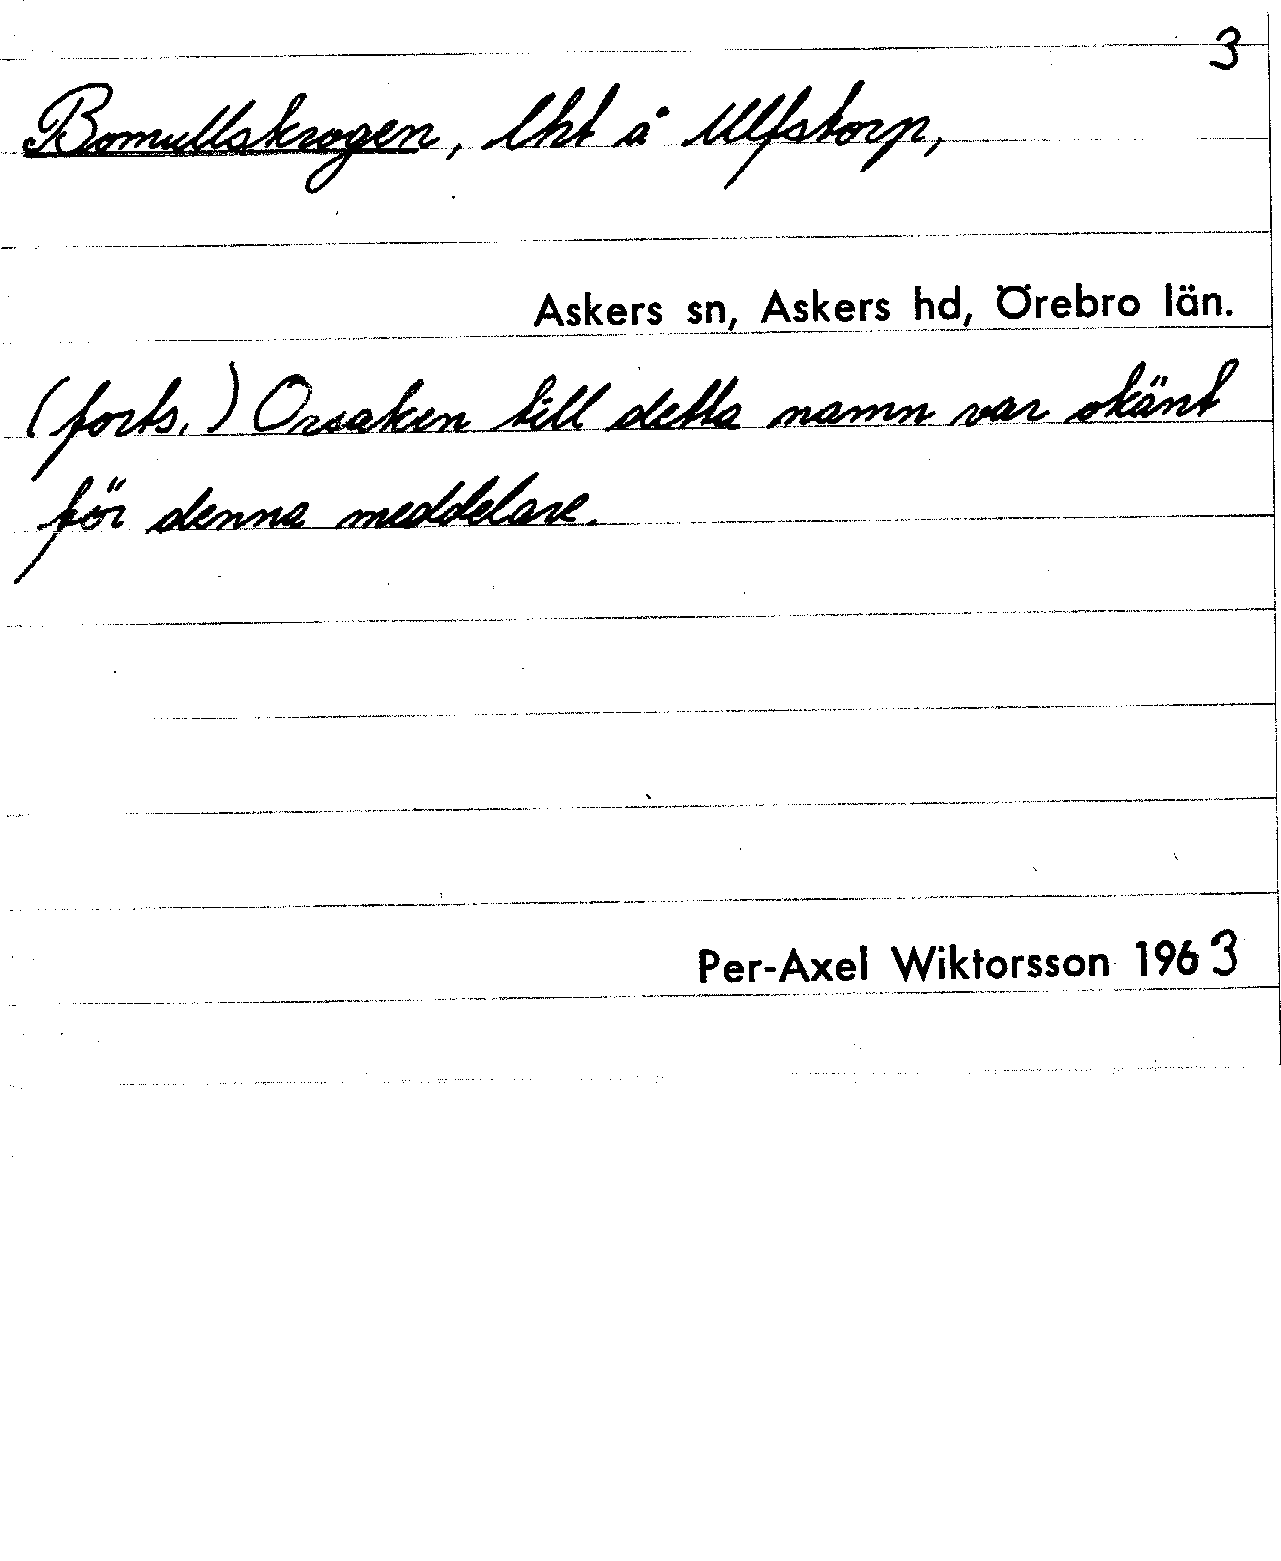 3
Bomullskrogen, lht å Ulfstorp,
Askers sn, Askers hd, Örebro län.
(forts.) Orsaken till detta namn var okänt
för denna meddelare.
Per-Axel Wiktorsson 1963